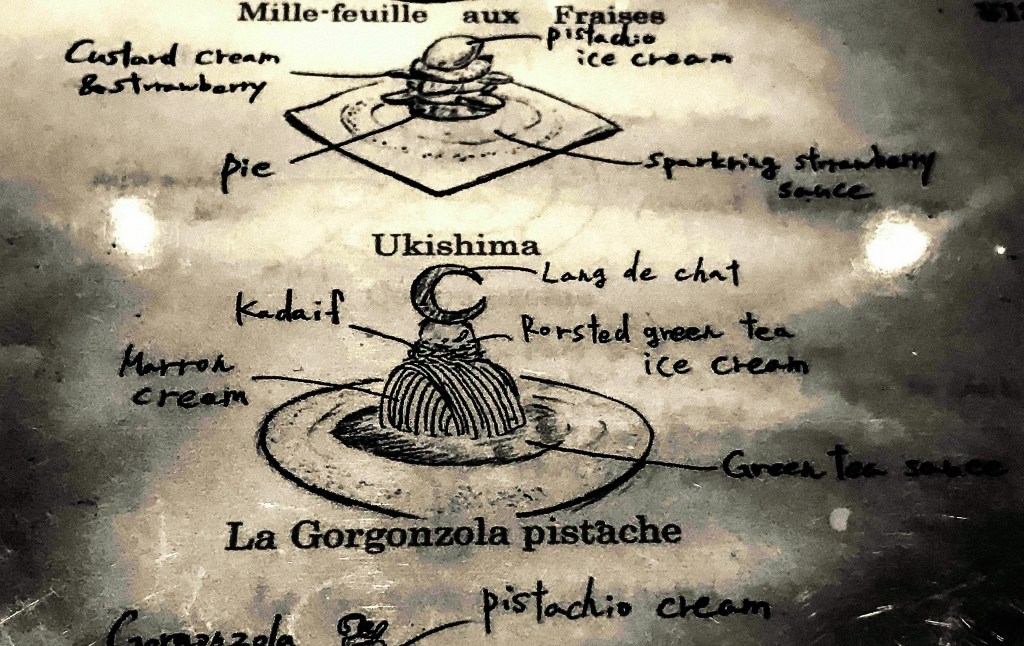 Mille-feuille aux Fraises
pistachio
ice cream
Custard cream
&strrawberry
pie
Sparkring strrawberry
sauce
Ukishima
Lang de chat
Kadaif
Rorsted green tea
ice cream
Marron
cream
Green tea sauce
La Gorgonzola pistache
pistachio cream
Gorgonzola